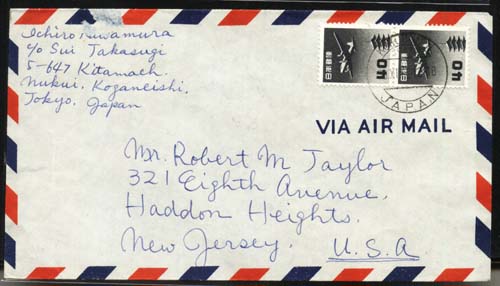 Ichiro Iwamura
c/o Sui Takasugi
5-647 Kitamach.
Nukui, Koganeishi,
Tokyo, Japan
日本郵便
40
日本郵便
40
JAPAN
VIA AIR MAIL
Mr. Robert M Taylor
321 Eighth Avenue.
Haddon Heights.
New Jersey. U.S.A